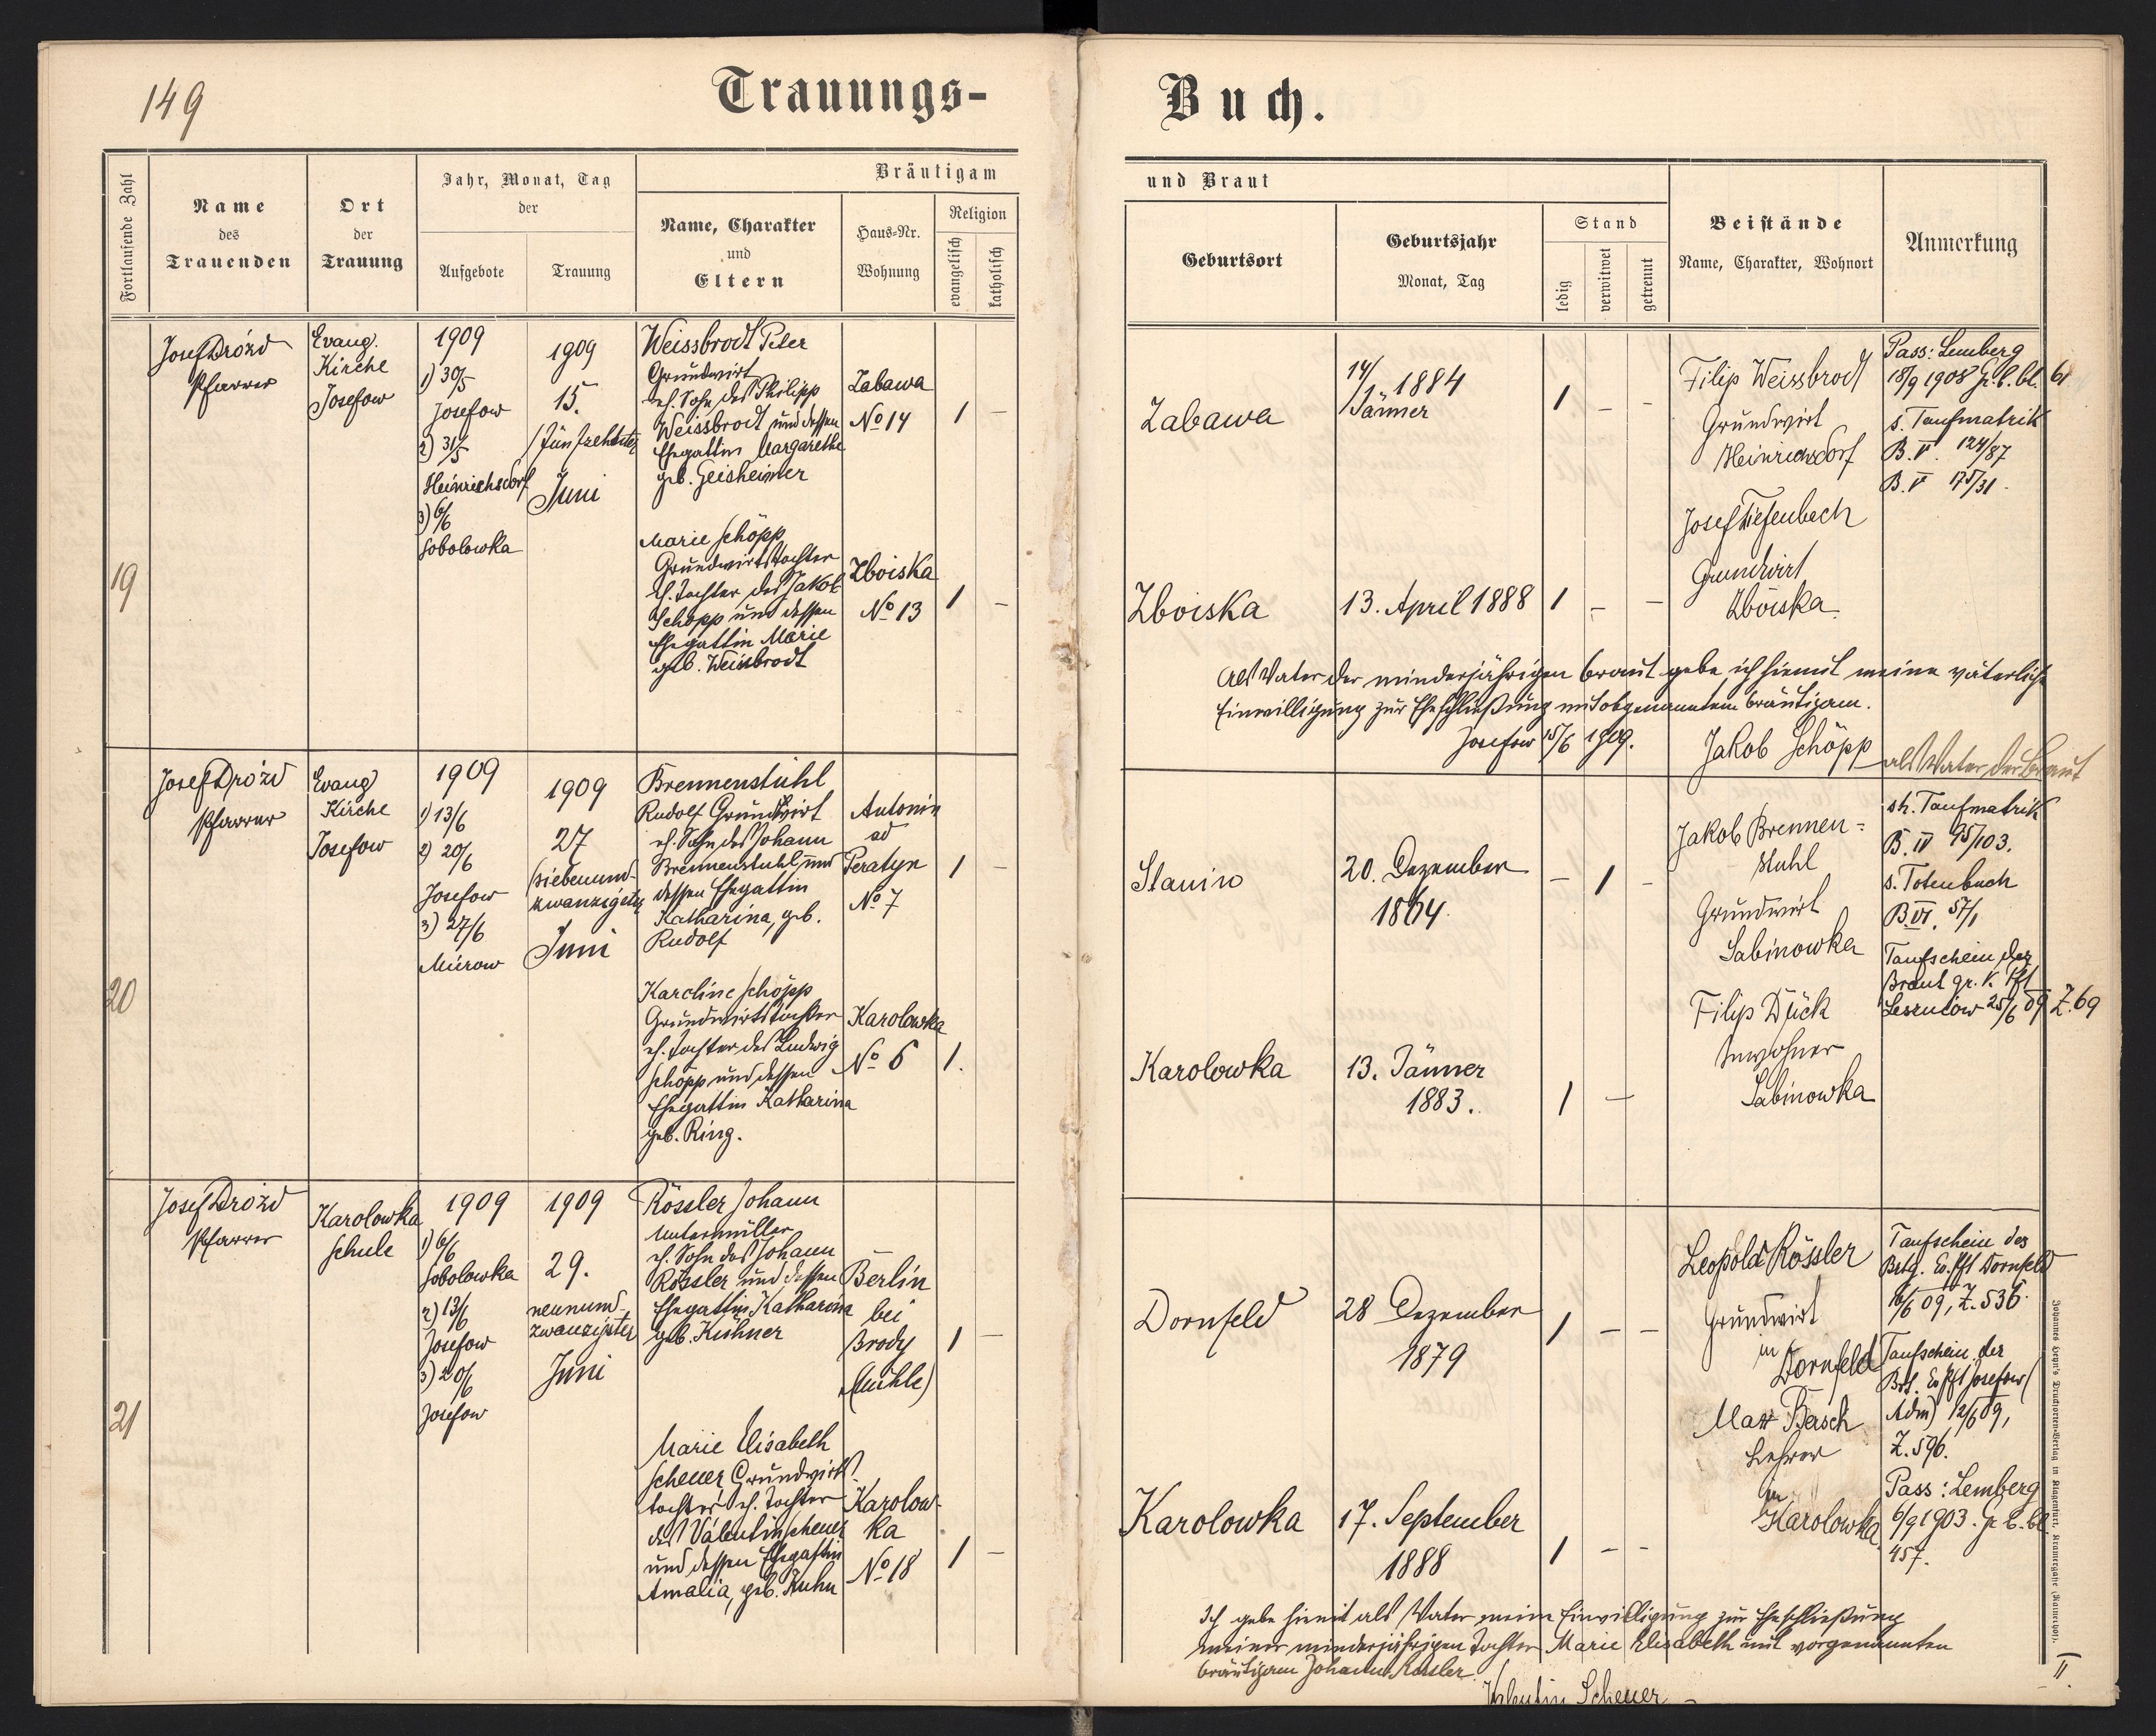 149
Trauungs-
Buch.
Fortlaufende Zahl
Name
des
Trauenden
Ort
der
Trauung
Jahr, Monat, Tag
der
Aufgebote
Trauung
Bräutigam
Name, Charakter
und
Eltern
Haus-Nr.
Wohnung
Religion
evangelisch
katholisch
und Braut
Geburtsort
Geburtsjahr
Monat, Tag
Stand
ledig
verwitwet
getrennt
Beistände
Name, Charakter, Wohnort
Anmerkung
19
Josef Drózd
Pfarrer
Evang.
Kirche
Josefow
1909
1) 30/5
Josefow
2) 31/5
Heinrichsdorf
3) 6/6
Sobolowka
1909
15.
(Fünfzehnter
Juni
Weissbrodt Peter
Grundwirt
eh. Sohn des Philipp
Weissbrodt und dessen
Ehegattin Margarethe
geb. Geisheimer
Zabawa
No 14
1 –
Marie Schöpp
Grundwirtstochter
eh. Tochter des Jakob
Schöpp und dessen
Ehegattin Marie
geb. Weissbrodt
Zboiska
No 13
1 –
Zabawa
14/1. 1884
Jänner
1 – –
Zboiska
13. April 1888
1 – –
Filip Weissbrodt
Grundwirt
Heinrichsdorf
Josef Tiefenbach
Grundwirt
Zboiska
Pass: Lemberg
18/9 1908 Gr. b. bl. 61
s. Taufmatrik
B. V. 124/87
B. V 175/31.
Als Vater der minderjährigen Braut gebe ich hiemit meine väterliche
Einwilligung zur Eheschließung mit obgenanntem Bräutigam.
Josefow 15/6 1909.
Jakob Schöpp als Vater der Braut
20
Josef Drózd
Pfarrer
Evang
Kirche
Josefow
1909
1) 13/6
2) 20/6
Josefow
3) 27/6
Mierow
1909
27
(siebenund-
zwanzigster
Juni
Brennenstuhl
Rudolf Grundwirt
eh. Sohn des Johann
Brennenstuhl und
dessen Ehegattin
Katharina, geb.
Rudolf
Antonin
ad
Peratyn
No 7
1 –
Karoline Schöpp
Grundwirtstochter
eh. Tochter des Ludwig
Schöpp und dessen
Ehegattin Katharina
geb. Ring.
Karolowka
No 6
1.
Stanin
20. Dezember
1864.
– 1 –
Karolowka
13. Jänner
1883.
1 –
Jakob Brennen=
stuhl
Grundwirt
Sabinowka
Filip Dück
Inwohner
Sabinowka
sh. Taufmatrik
B. IV 95/103.
s. Totenbuch
B. VI. 57/1
Taufschein der
Braut gr. k. Pft
Leszniow 25/6 09 Z. 69
21
Josef Drózd
Pfarrer
Karolowka
Schule
1909
1) 6/6
Sobolowka
2) 13/6
Josefow
3) 20/6
Josefow
1909
29.
neunund-
zwanzigster
Juni
Rössler Johann
Untermüller
eh. Sohn des Johann
Rössler und dessen
Ehegattin Katharina
geb. Kühner
Berlin
bei
Brody
(Mühle)
1 –
Marie Elisabeth
Scheuer Grundwirts
tochter eh. Tochter
des Valentin Scheuer
und dessen Ehegattin
Amalia, geb. Kuhn
Karolow-
ka
No 18
1 –
Dornfeld
28 Dezember
1879
1 – –
Karolowka
17. September
1888
1 – –
Leopold Rössler
Grundwirt
in
Dornfeld
Max Bersch
Lehrer
in
Karolowka
Taufschein des
Brtg. Ev. Pft Dornfeld
16/6 09, Z. 536.
Taufschein der
Brt. Ev Pft Josefow (
Adm) 12/6 09,
Z. 596.
Pass: Lemberg
6/9 1903. Gr. b. bl.
457.
Ich gebe hiemit als Vater meine Einwilligung zur Eheschließung
meiner minderjährigen Tochter Marie Elisabeth mit vorgenannten
Bräutigam Johann Rössler.
Valentin Scheuer –
Johannes Heyn's Drucksorten-Verlag in Klagenfurt, Kramergasse (Kaiserhof).
II.